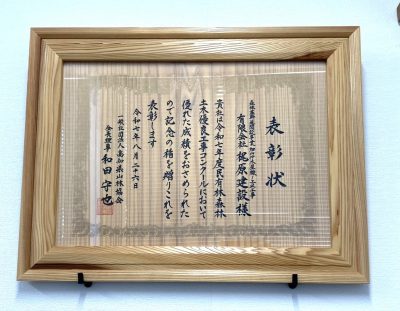 表彰状
有限会社 梶原建設様
貴社は令和七年度民有林森林
土木優良工事コンクールにおいて
優れた成績をおさめられた
ので記念の楯を贈りこれを
表彰します
令和七年八月二十六日
一般社団法人高知県山林協会
会長理事 和田守也